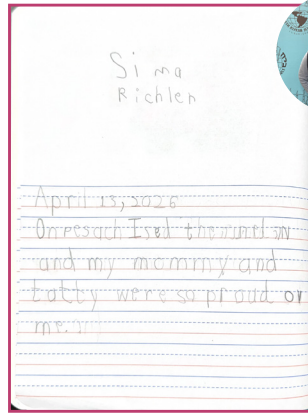 Sima
Richler
April 15, 2026
On pesach I
and my mommy and
tatty were so proud ov
me.